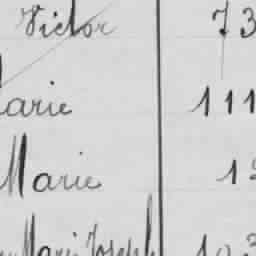 Victor 73
Marie 111
Marie
Marie Joseph